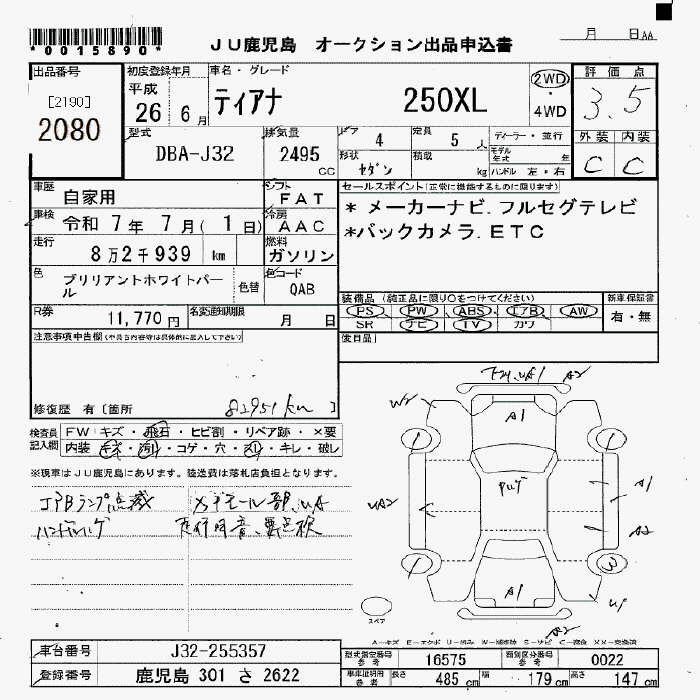 *0015890*
JU鹿児島 オークション出品申込書
月 日AA
出品番号
[2190]
2080
初度登録年月
平成
26年 6月
車名・グレード
ティアナ 250XL
2WD
・
4WD
評価点
3.5
外装 内装
C C
型式
DBA-J32
排気量
2495 CC
ドア 4
形状 セダン
定員 5 人
積載 kg
ディーラー・並行
モデル年式 年
ハンドル 左・右
車歴
自家用
シフト
FAT
車検
令和 7年 7月( 1日)
冷房
AAC
走行
8万2千939 km
燃料
ガソリン
色
ブリリアントホワイトパール
色替
色コード
QAB
R券
11,770円
名変通知期限
月 日
セールスポイント(正常に機能するものに限ります)
* メーカーナビ.フルセグテレビ
*バックカメラ.ETC
装備品 (純正品に限り○をつけてください)
PS PW ABS エアB AW
SR ナビ TV カワ
新車保証書
有・無
後日品
注意事項申告欄
修復歴 有〔箇所 〕
82951km
検査員
記入欄
FW キズ・飛石・ヒビ割・リペア跡・×要
内装 キズ・汚れ・コゲ・穴・スレ・キレ・破レ
※現車はJU鹿児島にあります。陸送費は落札店負担となります。
エアBランプ点滅
A2
A1
W2
UA2
A1
A2
A1
A2
スペア
車台番号
J32-255357
登録番号
鹿児島 301 さ 2622
型式指定番号
参考
16575
類別区分番号
参考
0022
車車証明用
参考
長さ 485 cm
幅 179 cm
高さ 147 cm